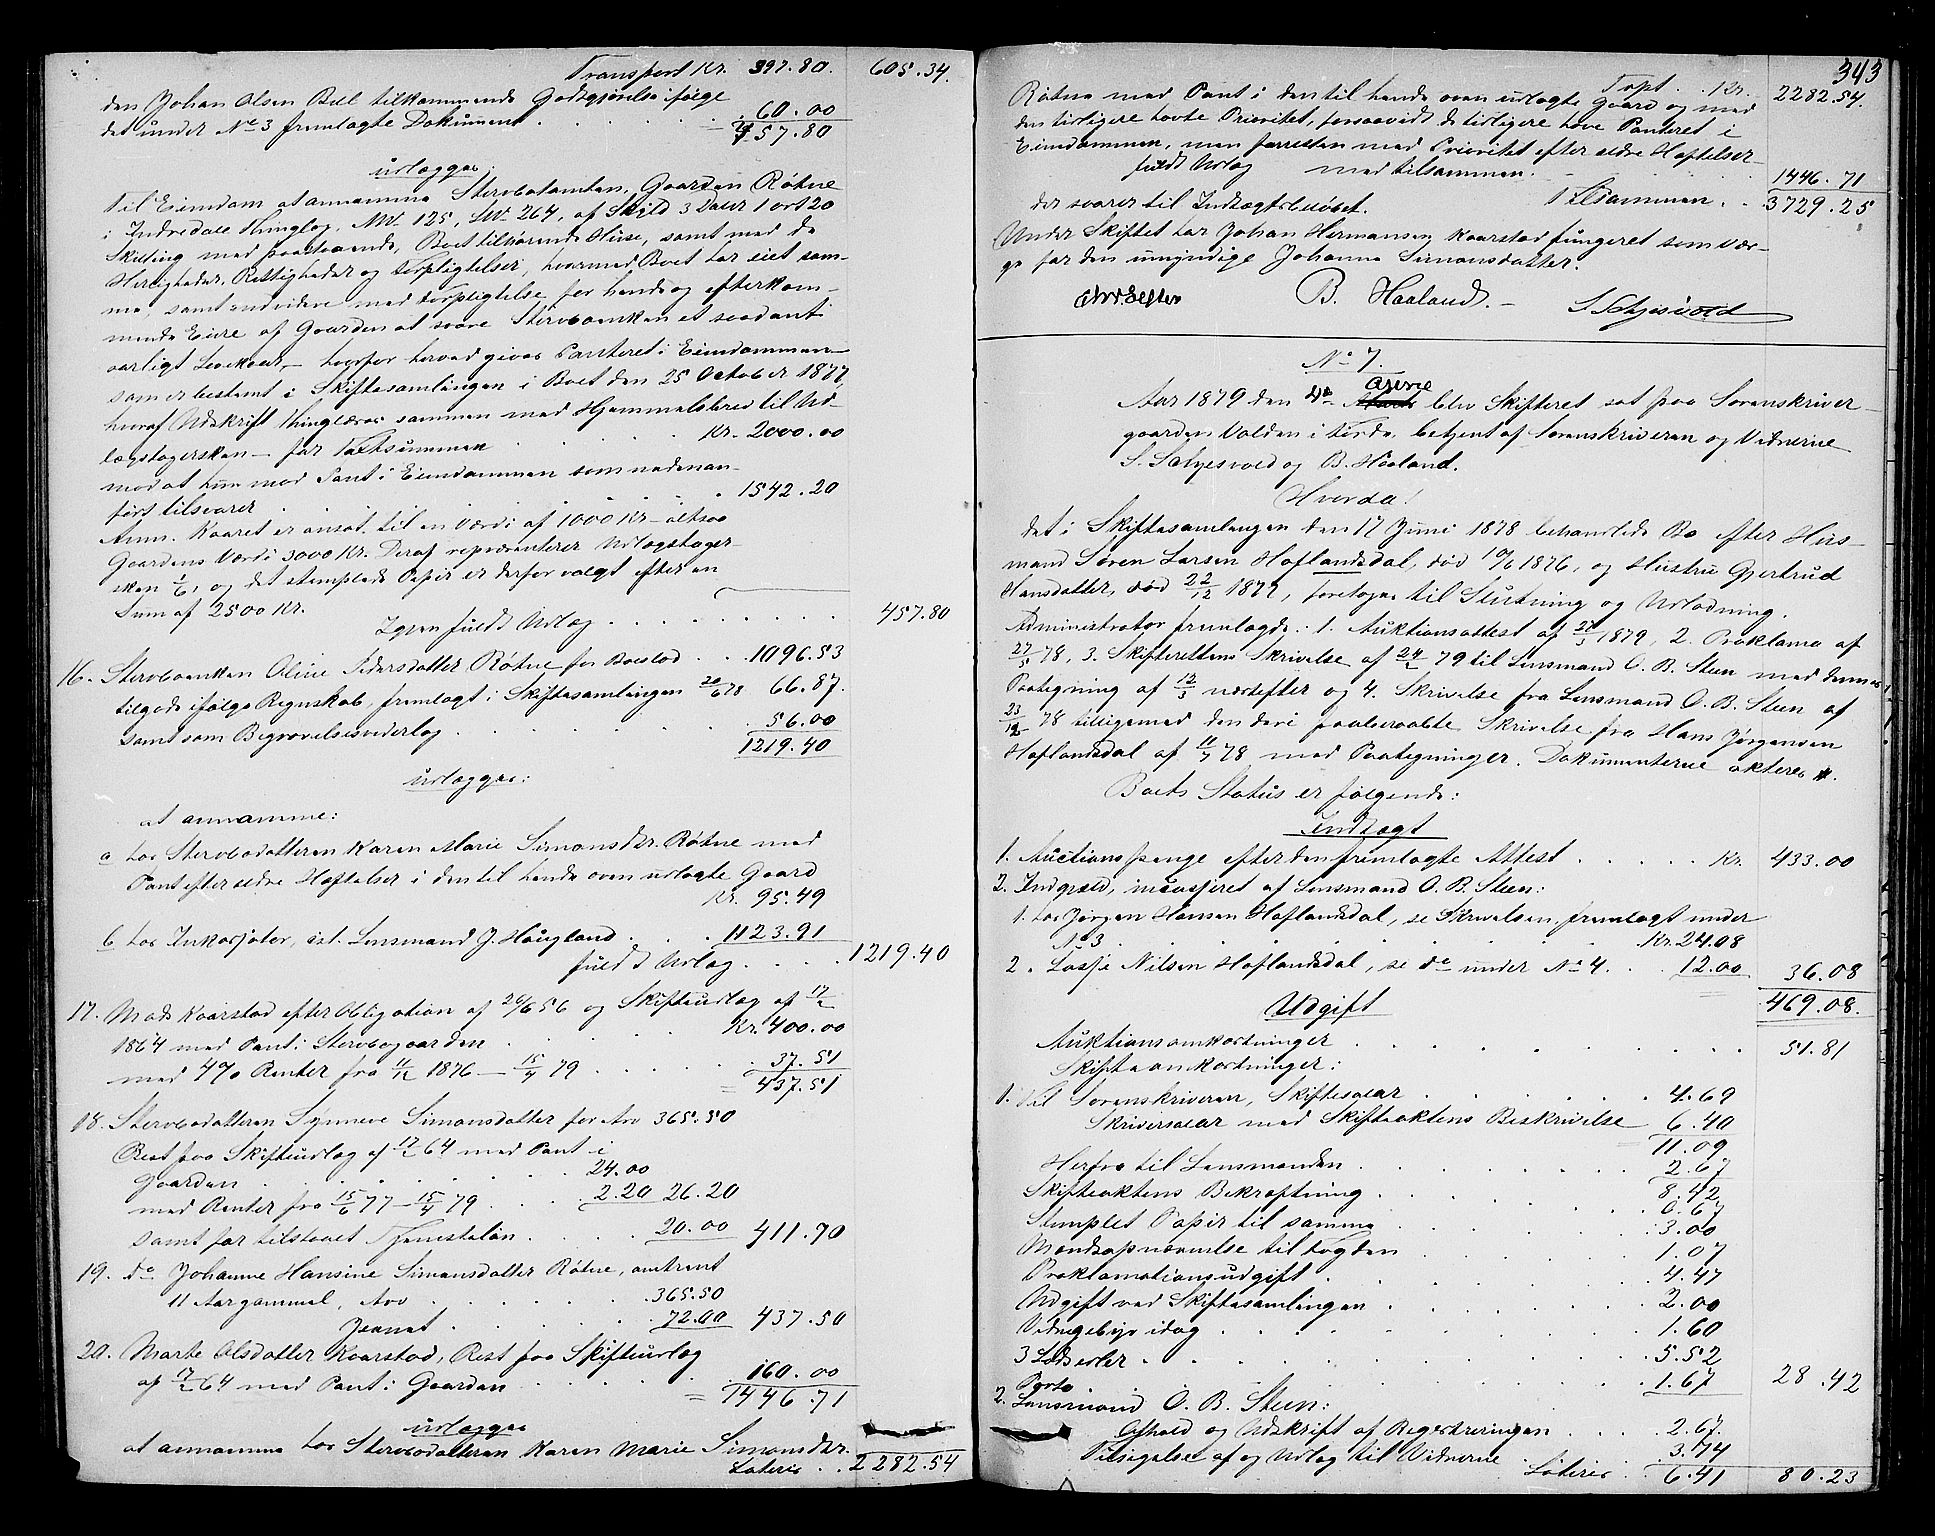 Transport Kr. 397.80. 605.34.
den Johan Olsen Bell tilkommende Godtgjørelse ifølge
det under No 3 fremlagte Dokument . . . 60.00
457.80
udlægges:
Til Eiendom at annamme Stervbotomten, Gaarden Røtne
i Indredale Thinglag, MN. 125, LN. 264, af Skyld 3 Daler 1 ort 20
Skilling med paastaaende, Boet tilhørende Huse, samt med de
Herligheder, Rettigheder og Forpligtelser, hvormed Boet har eiet sam-
me, samt endvidere med Forpligtelse for hende og efterkom-
mende Eiere af Gaarden at svare Stervboenken et saadant
aarligt Levekaar, – hvorfor herved gives Panteret i Eiendommen –
som er bestemt i Skiftesamlingen i Boet den 25 October 1877,
hvoraf Udskrift thinglæses sammen med Hjemmelsbrev til Ud-
lægstagersken – for Taxtsummen . . . Kr. 2000.00
mod at hun med Pant i Eiendommen som nedenan-
ført tilsvarer . . . 1542.20
Anm. Kaaret er ansat til en Værdi af 1000 Kr – altsaa
Gaardens Værdi 3000 Kr. Deraf repræsenterer Udlægstager-
sken 1/6, og det stemplede Papir er derfor valgt efter en
Sum af 2500 Kr.
Igjen fuldt Udlæg . . . 457.80
16. Stervboenken Oline Pedersdatter Røtne for Boeslod . . 1096.53
tilgode ifølge Regnskab, fremlagt i Skiftesamlingen 20/6 78 66.87.
samt som Begravelsesvederlag . . . 56.00
1219.40
udlægges:
at annamme:
a hos Stervbodatteren Karen Marie Simonsdtr. Røtne med
Pant efter ældre Heftelser i den til hende oven udlagte Gaard
Kr. 95.49
b hos Inkassator, cst. Lensmand J. Haugland . . 1123.91
fuldt Udlæg . . . 1219.40
17. Mads Kaarstad efter Obligation af 20/6 56 og Skifteudlæg af 17/2
1864 med Pant i Stervbogaarden . . . Kr. 400.00
med 4% Renter fra 11/12 1876 – 15/4 79 . . . 37.51
= 437.51
18. Stervbodatteren Synneve Simonsdatter for Arv 365.50
Rest paa Skifteudlæg af 17/2 64 med Pant i
Gaarden . . . 24.00
med Renter fra 15/6 77 – 15/4 79 . . . 2.20 26.20
samt for tilstaaet Tjenesteløn . . . 20.00 411.70
19. do Johanne Hansine Simonsdatter Røtne, omtrent
11 Aar gammel, Arv . . . 365.50
72.00 437.50
20. Marte Olsdatter Kaarstad, Rest paa Skifteudlæg
af 17/2 64 med Pant i Gaarden . . . 160.00
= 1446.71
udlægges
at annamme hos Stervbodatteren Karen Marie Simonsdtr.
Lateris . . 2282.54
343
Trspt. . Kr. 2282.54.
Røtne med Pant i den til hende oven udlagte Gaard og med
den tidligere havte Prioritet, forsaavidt de tidligere have Panteret i
Eiendommen, men forresten med Prioritet efter ældre Heftelser
fuldt Udlæg med tilsammen . . . 1446.71
der svarer til Indtægtsbeløbet. Tilsammen . . 3729.25
Under Skiftet har Johan Hermansen Kaarstad fungeret som Vær-
ge for den umyndige Johanne Simonsdatter.
B. Haaland. – S. Schjesvold
No 7.
Aar 1879 den 4de Marts April blev Skifteret sat paa Sorenskriver-
gaarden Volden i Førde, betjent af Sorenskriveren og Vidnerne
S. Schjesvold og B. Haaland.
Hvorda!
det i Skiftesamlingen den 17 Juni 1878 behandlede Bo efter Hus-
mand Søren Larsen Haflandsdal, død 10/6 1876, og Hustru Gjertrud
Hansdatter, død 22/12 1877, foretoges til Slutning og Udlodning.
Administrator fremlagde: 1. Auktionsattest af 28/3 1879, 2. Proklama af
27/5 78, 3. Skifterettens Skrivelse af 24/2 79 til Lensmand O. B. Steen med dennes
Paategning af 12/3 næstefter og 4. Skrivelse fra Lensmand O. B. Steen af
23/12 78 tilligemed den deri paaberaabte Skrivelse fra Hans Jørgensen
Haflandsdal af 11/7 78 med Paategninger. Dokumenterne akteres.
Boets Status er følgende:
Indtægt
1. Auctionspenge efter den fremlagte Attest . . . Kr. 433.00
2. Indgjæld, incasseret af Lensmand O. B. Steen:
1. hos Jørgen Hansen Haflandsdal, se Skrivelsen, fremlagt under
No 3 . . . Kr. 24.08
2. Lasse Nilsen Haflandsdal, se do under No 4. . . 12.00 36.08
469.08.
Udgift
Auktionsomkostninger . . . 51.81
Skifteomkostninger:
1. Til Sorenskriveren, Skiftesalær . . . 4.69
Skriversalær med Skifteaktens Beskrivelse 6.40
11.09
Herfra til Lensmanden . . . 2.67
8.42
Skifteaktens Bekræftning . . . 0.67
Stemplet Papir til samme . . . 3.00
Mandsopnævnelse til Fogden . . . 1.07
Proklamationsudgift . . . 4.47
Udgift ved Skiftesamlingen . . . 2.00
Vidnegebyr idag . . . 1.60
3 Lodsedler . . . 5.52
Porto . . . 1.67 28.42
2. Lensmand O. B. Steen:
Afhold og Udskrift af Registreringen . . . 2.67.
Tilsigelse af og Udlæg til Vidnerne . . . 3.74
Lateris . . 6.41 80.23